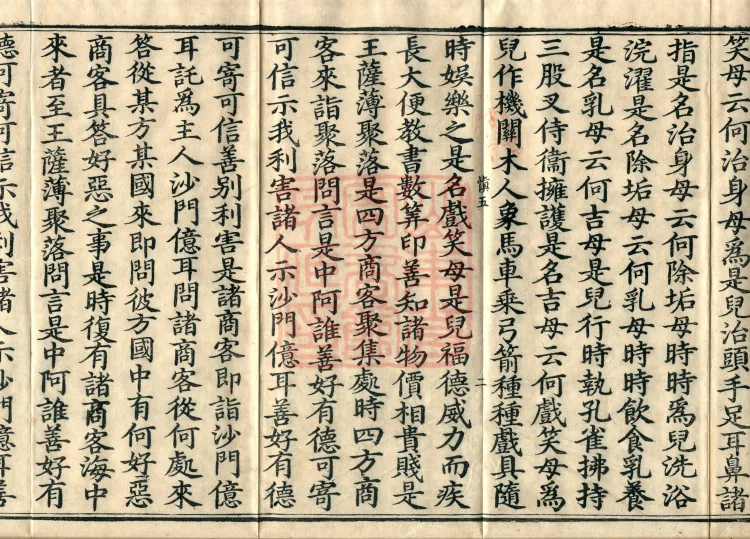 笑母云何治身母爲是兒治頭手足耳鼻諸
指是名治身母云何除垢母時時爲兒洗浴
浣濯是名除垢母云何乳母時時飲食乳養
是名乳母云何吉母是兒行時執孔雀拂持
三股叉侍衞擁護是名吉母云何戲笑母爲
兒作機關木人象馬車乘弓箭種種戲具隨
慎五 二
時娛樂之是名戲笑母是兒福德威力而疾
長大便教書數筭印善知諸物價相貴賤是
王薩薄聚落是四方商客聚集處時四方商
客來詣聚落問言是中阿誰善好有德可寄
可信示我利害諸人示沙門億耳善好有德
可寄可信善别利害是諸商客即詣沙門億
耳託爲主人沙門億耳問諸商客從何處來
答從某方某國來即問彼方國中有何好惡
商客具答好惡之事是時復有諸商客海中
來者至王薩薄聚落問言是中阿誰善好有
德可寄可信示我利害諸人示沙門億耳善